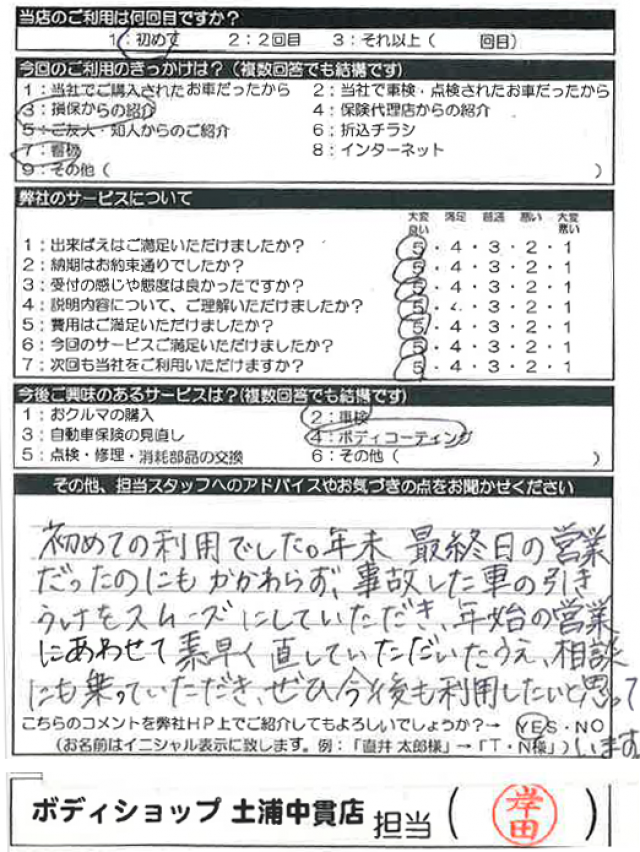 当店のご利用は何回目ですか？
1：初めて 2：2回目 3：それ以上（ 回目）
今回のご利用のきっかけは？（複数回答でも結構です）
1：当社でご購入されたお車だったから 2：当社で車検・点検されたお車だったから
3：損保からの紹介 4：保険代理店からの紹介
5：ご友人・知人からのご紹介 6：折込チラシ
7：看板 8：インターネット
9：その他（ ）
弊社のサービスについて
大変良い 満足 普通 悪い 大変悪い
1：出来ばえはご満足いただけましたか？ 5・4・3・2・1
2：納期はお約束通りでしたか？ 5・4・3・2・1
3：受付の感じや態度は良かったですか？ 5・4・3・2・1
4：説明内容について、ご理解いただけましたか？ 5・4・3・2・1
5：費用はご満足いただけましたか？ 5・4・3・2・1
6：今回のサービスご満足いただけましたか？ 5・4・3・2・1
7：次回も当社をご利用いただけますか？ 5・4・3・2・1
今後ご興味のあるサービスは？（複数回答でも結構です）
1：おクルマの購入 2：車検
3：自動車保険の見直し 4：ボディコーティング
5：点検・修理・消耗部品の交換 6：その他（ ）
その他、担当スタッフへのアドバイスやお気づきの点をお聞かせください
初めての利用でした。年末 最終日の営業
だったのにもかかわらず、事故した車の引き
うけをスムーズにしていただき、年始の営業
にあわせて素早く直していただいたうえ、相談
にも乗っていただき、ぜひ今後も利用したいと思って
います
こちらのコメントを弊社HP上でご紹介してもよろしいでしょうか？→ YES・NO
（お名前はイニシャル表示に致します。例：「直井 太郎様」→「T・N様」）
ボディショップ 土浦中貫店 担当（ 岸田 ）